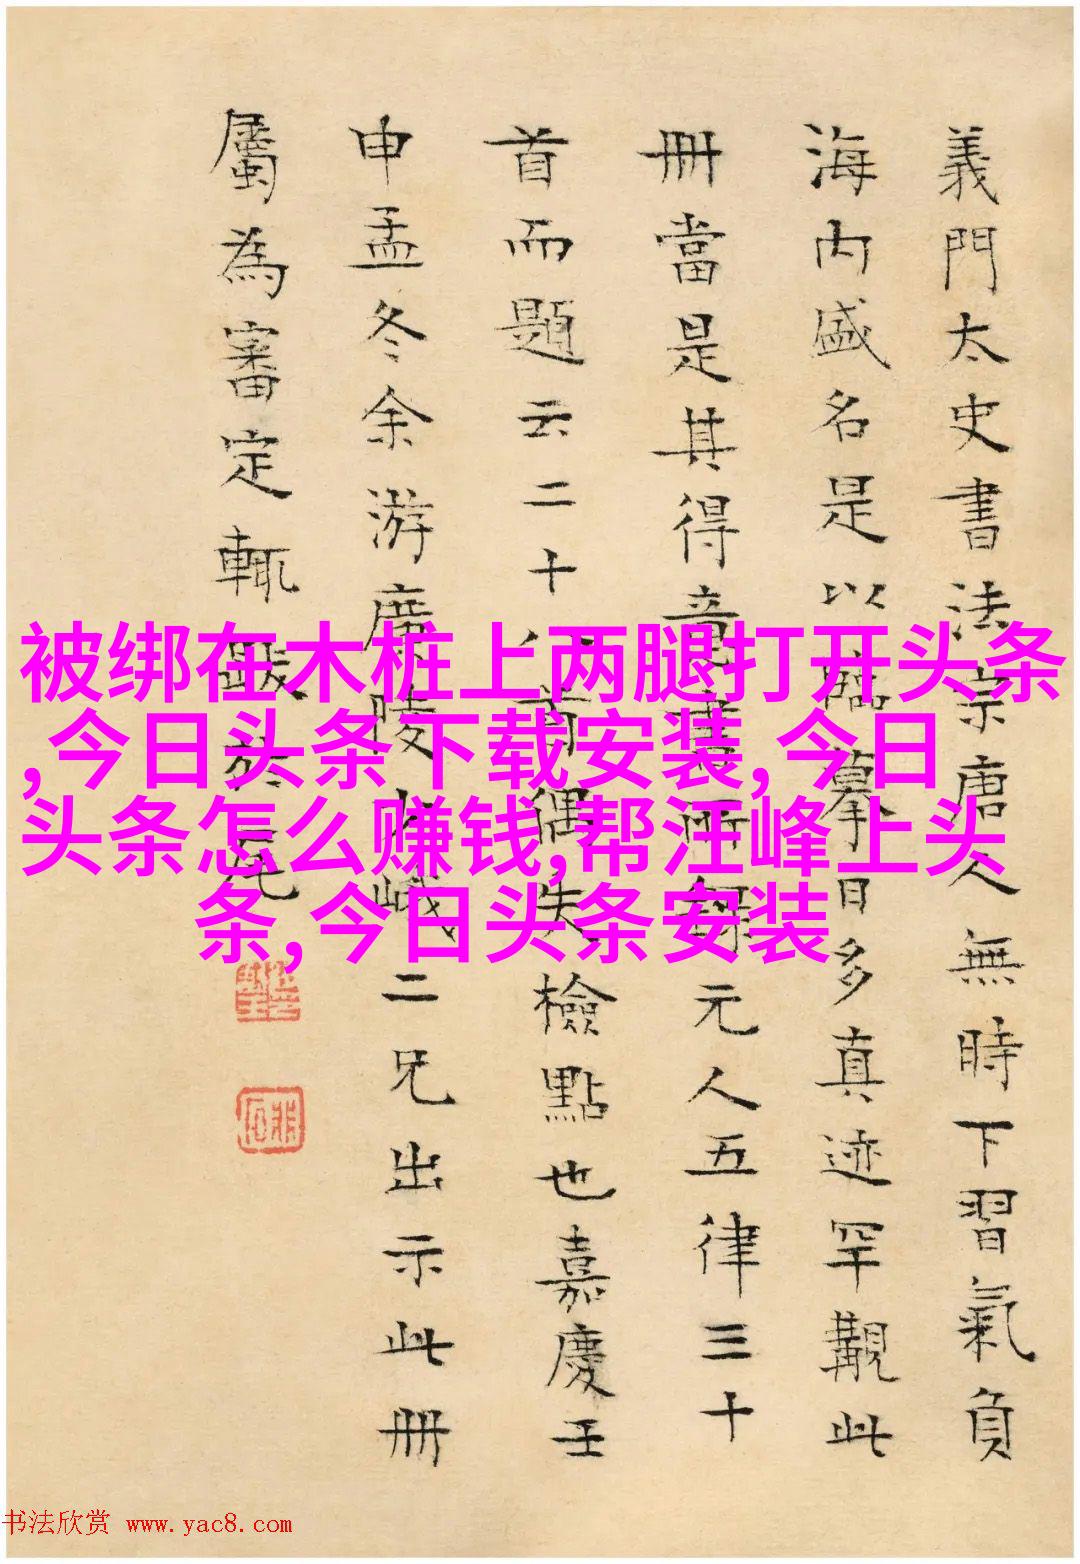 義門太史書法宗唐人無時下習氣負
海内盛名是以臨摹日多真迹罕覯此
冊當是其得意書所録元人五律三十
首而題云二十八首偶失檢點也嘉慶壬
申孟冬余游廣陵峨二兄出示此冊
屬為審定輒跋於尾
被绑在木桩上两腿打开头条
,今日头条下载安装,今日
头条怎么赚钱,帮汪峰上头
条,今日头条安装
书法欣赏 www.yac8.com